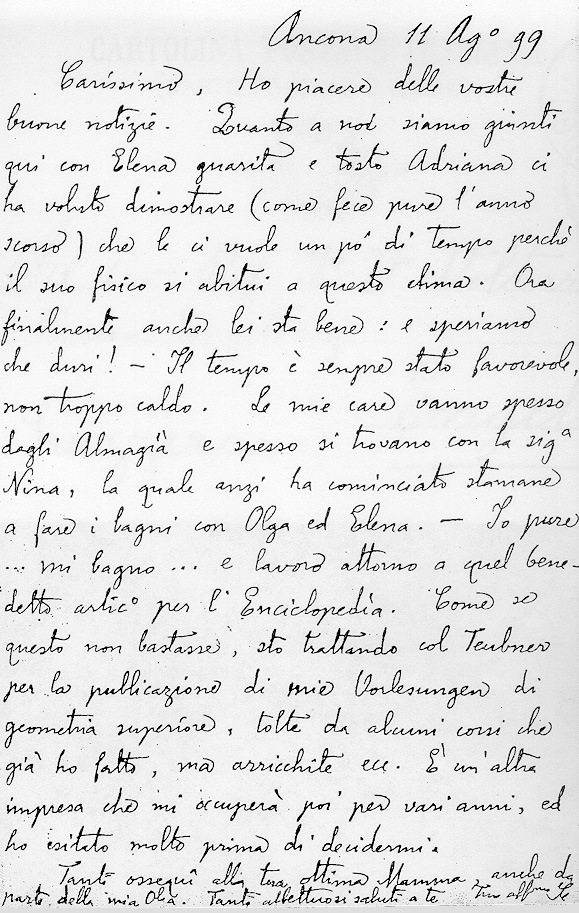 Ancona 11 Ag° 99
Carissimo, Ho piacere delle vostre
buone notizie. Quanto a noi siamo giunti
qui con Elena guarita e tosto Adriana ci
ha voluto dimostrare (come fece pure l'anno
scorso) che le ci vuole un po' di tempo perchè
il suo fisico si abitui a questo clima. Ora
finalmente anche lei sta bene: e speriamo
che duri! — Il tempo è sempre stato favorevole,
non troppo caldo. Le mie care vanno spesso
dagli Almagià e spesso si trovano con la sigª
Nina, la quale anzi ha cominciato stamane
a fare i bagni con Olga ed Elena. — Io pure
... mi bagno ... e lavoro attorno a quel bene-
detto artic° per l'Enciclopedia. Come se
questo non bastasse, sto trattando col Teubner
per la publicazione di mie Vorlesungen di
geometria superiore, tolte da alcuni corsi che
già ho fatto, ma arricchite ecc. È un'altra
impresa che mi occuperà poi per vari anni, ed
ho esitato molto prima di decidermi.
Tanti ossequî alla tua ottima Mamma, anche da
parte della mia Olga. Tanti affettuosi saluti a te. Tuo